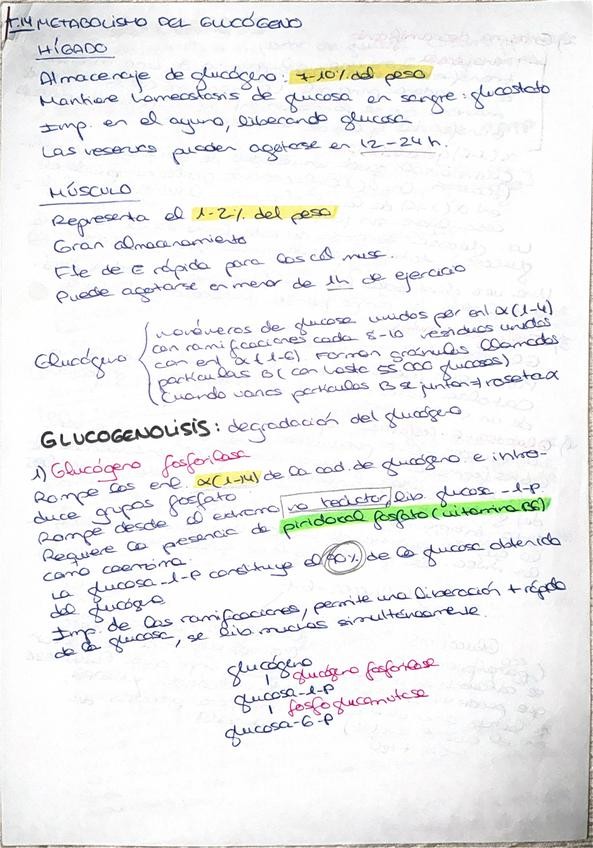 T.14 METABOLISMO DEL GLUCÓGENO
HÍGADO
Almacenaje de glucógeno: 7-10% del peso
Mantiene homeostasis de glucosa en sangre: glucostato
Imp. en el ayuno, liberando glucosa
Las reservas pueden agotarse en 12-24h.
MÚSCULO
Representa el 1-2% del peso
Gran almacenamiento
Fte de E rápida para las cél musc.
Puede agotarse en menor de 1h de ejercicio
Glucógeno
monómeros de glucosa unidos por enl α(1-4)
con ramificaciones cada 8-10 residuos unidos
con enl α(1-6) Forman gránulos llamados
partículas B (con hasta 55 000 glucosas)
Cuando varias partículas B se juntan → roseta α
GLUCOGENOLISIS: degradación del glucógeno
1) Glucógeno fosforilasa
Rompe los enl. α(1-14) de la cad. de glucógeno e intro-
duce grupos fosfato
Rompe desde el extremo no reductor, lib. glucosa-1-P.
Requiere la presencia de piridoxal fosfato (vitamina B6)
como coenzima.
La glucosa-1-P constituye el 90% de la glucosa obtenida
del glucógeno
Imp. de las ramificaciones, permite una liberación + rápida
de la glucosa, se lib. muchas simultáneamente.
glucógeno
glucógeno fosforilasa
glucosa-1-P
fosfoglucomutasa
glucosa-6-P